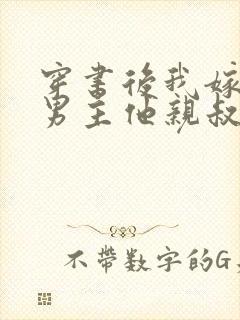 穿书后我嫁
男主他亲叔
不带数字的G